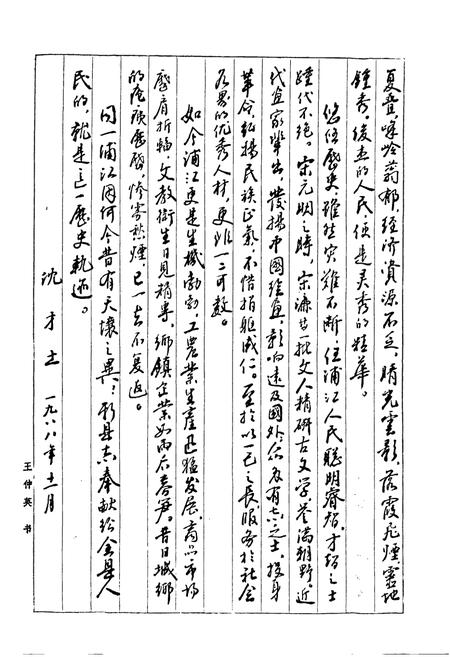 夏叠嶂岭蓊郁,经济资源不乏,晴光云影,落霞飞烟,灵地
钟秀,俊杰的人民,便是灵秀的精华。
悠悠历史,虽然灾难不断,但浦江人民聪明睿智,才智之士
历代不绝。宋元明之时,宋濂等一批文人精研古文学,誉满朝野。近
代画家辈出,发扬中国绘画,影响远及国外,众多有志之士,投身
革命,弘扬民族正气,不惜捐躯成仁。至於以一己之长服务於社会
各界的优秀人材,更非一二可数。
如今浦江更是生机勃勃,工农业生产迅猛发展,商品市场
摩肩折轴,文教衛生日见精专,乡镇企业如雨后春笋。昔日城乡
的疮痍,惨雾愁煙,已一去不复返。
同一浦江因何今昔有天壤之异?新县志奉献给全县人
民的,就是这一历史轨迹。
沈才土 一九八八年十一月
王仲英 书